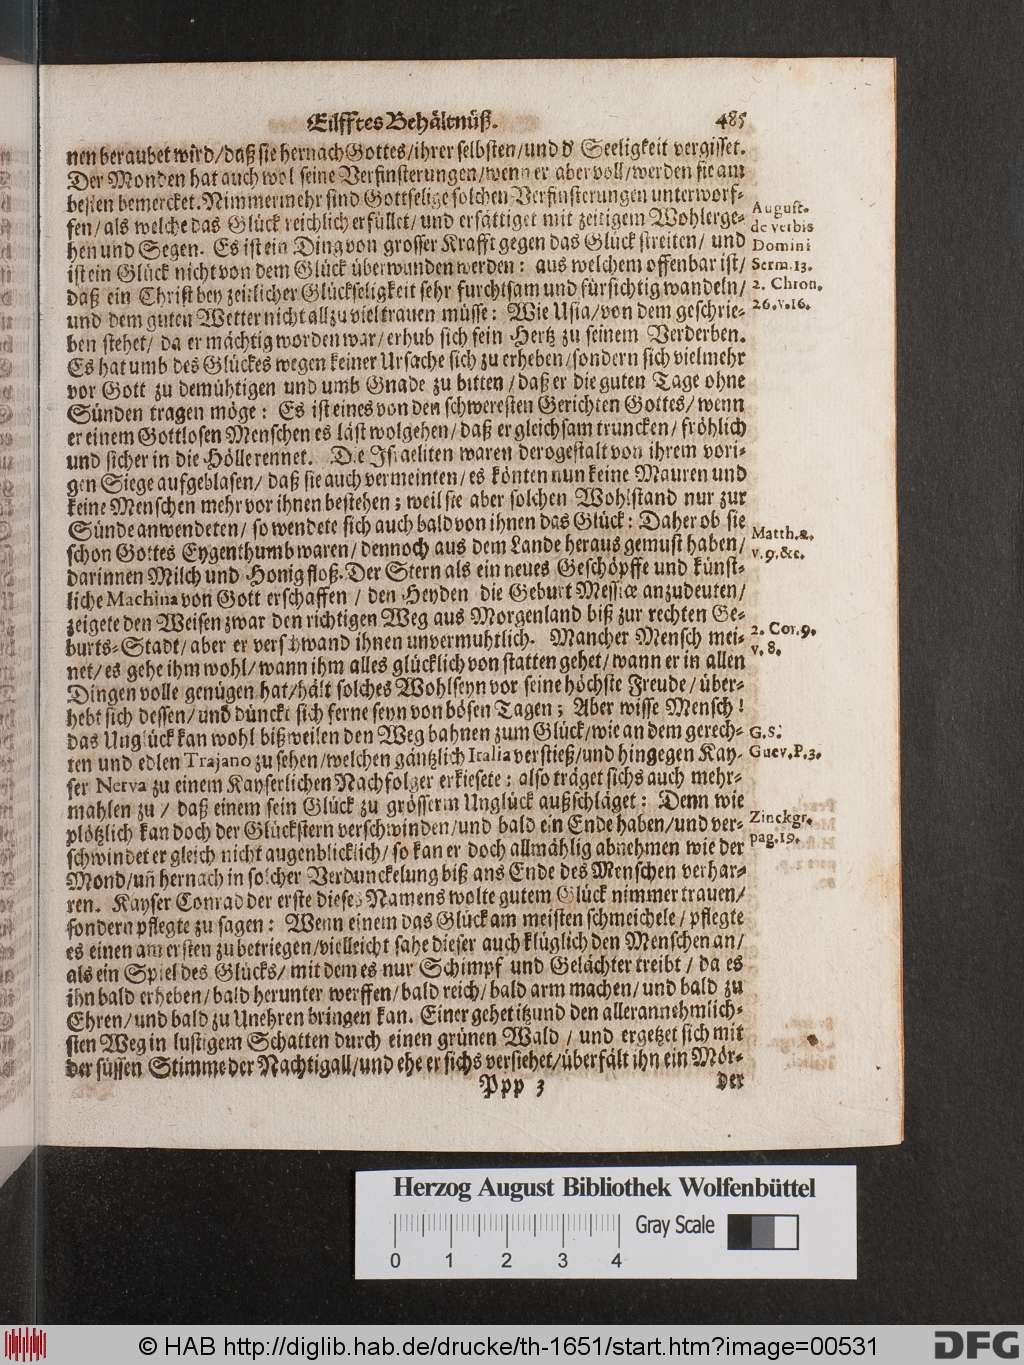 Eilfftes Behältnüß. 485
nen beraubet wird/daß sie hernach Gottes/ihrer selbsten/und d' Seeligkeit vergisset.
Der Monden hat auch wol seine Verfinsterungen/wenn er aber voll/werden sie am
besten bemercket. Nimmermehr sind Gottselige solchen Verfinsterungen unterworf-
fen/als welche das Glück reichlich erfüllet/und ersättiget mit zeitigem Wohlerge-
hen und Segen. Es ist ein Ding von grosser Krafft gegen das Glück streiten/ und
ist ein Glück nicht von dem Glück überwunden werden: aus welchem offenbar ist/
daß ein Christ bey zeitlicher Glückseligkeit sehr furchtsam und fürsichtig wandeln/
und dem guten Wetter nicht allzu viel trauen müsse: Wie Usia/von dem geschrie-
ben stehet/ da er mächtig worden war/erhub sich sein Hertz zu seinem Verderben.
Es hat umb des Glückes wegen keiner Ursache sich zu erheben/sondern sich vielmehr
vor Gott zu demühtigen und umb Gnade zu bitten/daß er die guten Tage ohne
Sünden tragen möge: Es ist eines von den schweresten Gerichten Gottes/wenn
er einem Gottlosen Menschen es läst wolgehen/daß er gleichsam truncken/fröhlich
und sicher in die Hölle rennet. Die Israeliten waren derogestalt von ihrem vori-
gen Siege aufgeblasen/ daß sie auch vermeinten/es könten nun keine Mauren und
keine Menschen mehr vor ihnen bestehen; weil sie aber solchen Wohlstand nur zur
Sünde anwendeten/so wendete sich auch bald von ihnen das Glück: Daher ob sie
schon Gottes Eygenthumb waren/dennoch aus dem Lande heraus gemust haben/
darinnen Milch und Honig floß. Der Stern als ein neues Geschöpffe und künst-
liche Machina von Gott erschaffen / den Heyden die Geburt Messiæ anzudeuten/
zeigete den Weisen zwar den richtigen Weg aus Morgenland biß zur rechten Ge-
burts-Stadt/aber er verschwand ihnen unvermuhtlich. Mancher Mensch mei-
net/es gehe ihm wohl/wann ihm alles glücklich von statten gehet/wann er in allen
Dingen volle genügen hat/hält solches Wohlseyn vor seine höchste Freude/über-
hebt sich dessen/und dünckt sich ferne seyn von bösen Tagen; Aber wisse Mensch!
das Unglück kan wohl bißweilen den Weg bahnen zum Glück/wie an dem gerech-
ten und edlen Trajano zu sehen/welchen gäntzlich Italia verstieß/und hingegen Kay-
ser Nerva zu einem Kayserlichen Nachfolger erkiesete: also träget sichs auch mehr-
mahlen zu / daß einem sein Glück zu grösserm Unglück außschläget: Denn wie
plötzlich kan doch der Glückstern verschwinden/und bald ein Ende haben/und ver-
schwindet er gleich nicht augenblicklich/so kan er doch allmählig abnehmen wie der
Mond/uñ hernach in solcher Verdunckelung biß ans Ende des Menschen verhar-
ren. Kayser Conrad der erste dieses Namens wolte gutem Glück nimmer trauen/
sondern pflegte zu sagen: Wenn einem das Glück am meisten schmeichele/pflegte
es einen am ersten zu betriegen/vielleicht sahe dieser auch klüglich den Menschen an/
als ein Spiel des Glücks/mit dem es nur Schimpf und Gelächter treibt/da es
ihn bald erheben/bald herunter werffen/bald reich/bald arm machen/und bald zu
Ehren/und bald zu Unehren bringen kan. Einer gehet itzund den allerannehmlich-
sten Weg in lustigem Schatten durch einen grünen Wald / und ergetzet sich mit
der süssen Stimme der Nachtigall/und ehe er sichs versiehet/überfält ihn ein Mör-
Ppp 3 der
August.
de verbis
Domini
Serm. 13.
2. Chron.
26. v. 16.
Matth. 2.
v. 9. &c.
2. Cor. 9.
v. 8.
G. S.
Guev. P. 3.
Zinckgr.
pag. 19.
Herzog August Bibliothek Wolfenbüttel
Gray Scale
0 1 2 3 4
© HAB http://diglib.hab.de/drucke/th-1651/start.htm?image=00531
DFG